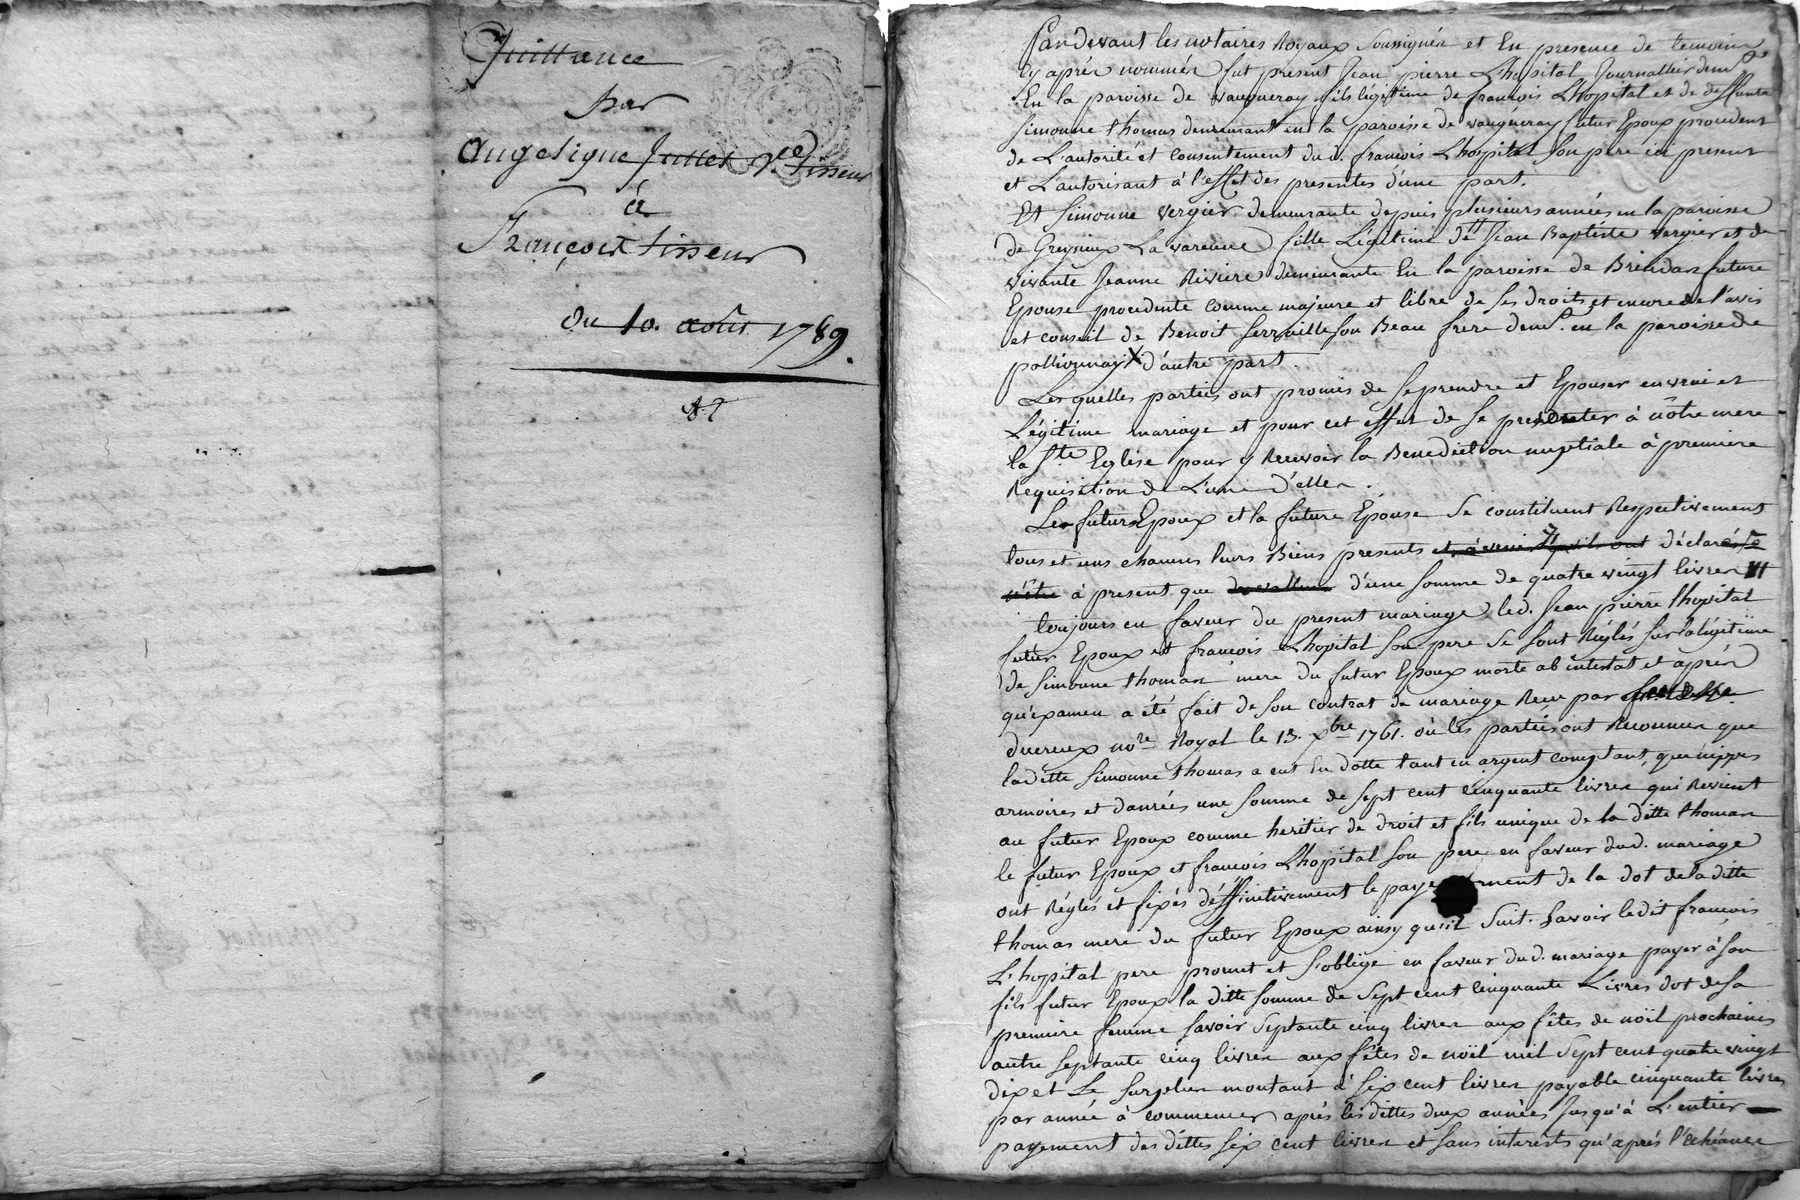 Quittance
par
Angelique Juttet Vce Tisseur
à
François Tisseur
Du 10. août 1789.
Pardevant les notaires Royaux soussignés et En presence de temoins
cy après nommés fut present Jean pierre Lhopital Journallier demt
En la paroisse de vaugneray fils légitime de françois Lhopital et de deffunte
Simonne thomas demeurant en la paroisse de vaugneray futur Epoux procedent
de L'autorité et consentement dud. françois Lhopital son pere ici present
et L'autorisant à l'effet des presentes d'une part.
Et Simonne vergier demeurante depuis plusieurs années en la paroisse
de Grezieux La varenne fille Légitime de Jean Baptiste vergier et de
vivante Jeanne Riviere demeurante En la paroisse de Brindas future
Epouse procedente comme majeure et libre de ses droits et encore de l'avis
et conseil de Benoit ferraille son Beau frere demt. en la paroisse de
pollionnay X d'autre part.
Les quelles parties ont promis de se prendre et Epouser en vrai et
Légitime mariage et pour cet effet de se presenter à nôtre mere
la Ste Eglise pour y Recevoir la Benediction nuptiale à premiere
Requisition de L'une d'elles.
Les futurs Epoux et la future Epouse se constituent Respectivement
tous et uns chacuns leurs Biens presents et à venir qu'ils ont déclarés
à present que de valleur d'une somme de quatre vingt livres
toujours en faveur du present mariage led. Jean pierre Lhopital
futur Epoux et françois Lhopital son pere se sont Réglés sur la légitime
de Simonne thomas mere du futur Epoux morte ab intestat et après
qu'examen a été fait de son contrat de mariage Reçu par
ducreux nore Royal le 13. xbre 1761. où les parties ont Reconnu que
laditte Simonne thomas a eut En dotte tant en argent comptant, que nippes
armoires et danrées une somme de sept cent cinquante livres qui Revient
au futur Epoux comme heritier de droit et fils unique de la ditte thomas
le futur Epoux et françois Lhopital son pere en faveur dud. mariage
ont Réglés et fixés déffinitivement le payement de la dot de la ditte
thomas mere du futur Epoux ainsy qu'il suit. Savoir ledit françois
L'hopital pere promet et s'oblige en faveur dud. mariage payer à son
fils futur Epoux la ditte somme de sept cent cinquante Livres dot de sa
premiere femme savoir septante cinq livres aux fêtes de noël prochaines
autre septante cinq livres aux fêtes de noël mil sept cent quatre vingt
dix et Le surplus montant à six cent livres payable cinquante livres
par année à commencer après les dittes deux années Jusqu'à L'entier
payement des dittes six cent livres et sans interests qu'après l'échéance